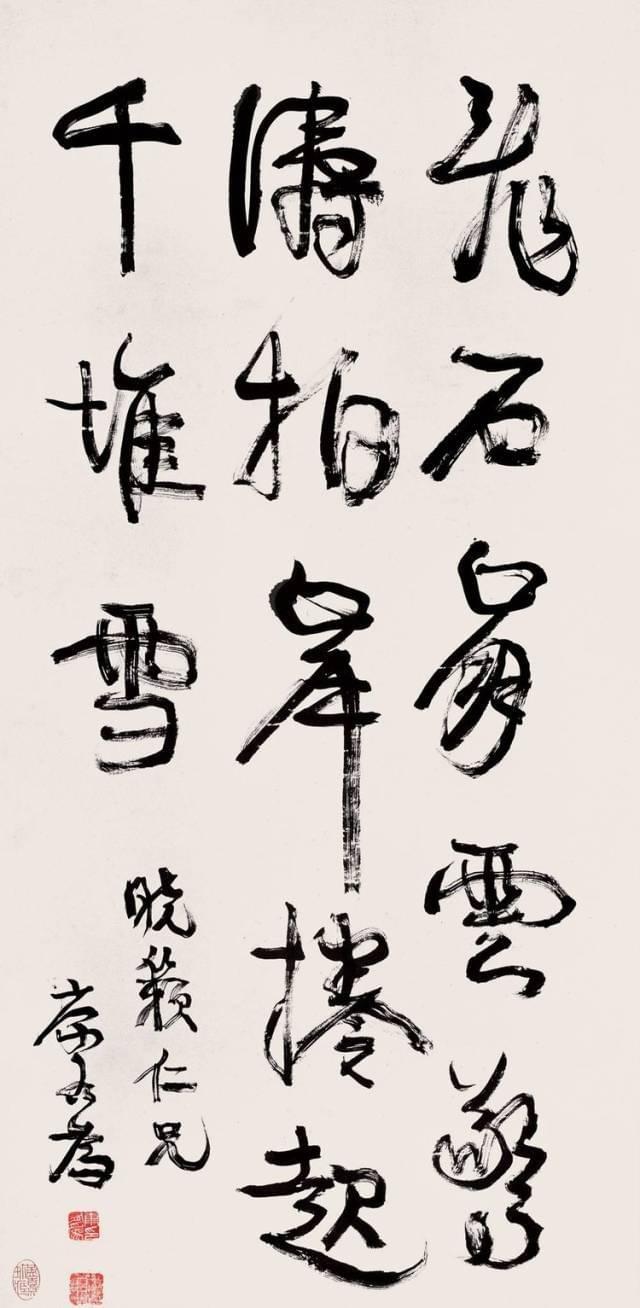 飛石崩雲驚
濤拍岸捲起
千堆雪
曉籟仁兄
康有為